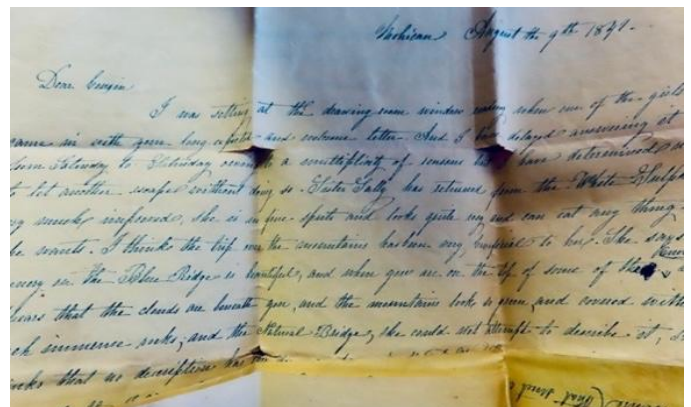 Mohican August the 9th 1841.
Dear Cousin
I was setting at the drawing room window reading when one of the girls
came in with your long expected and welcome letter. And I have delayed answering it
from Saturday to Saturday owing to a multiplicity of reasons but have determined
to let another escape without doing so. Sister Sally has returned from the White Sulphur
very much improved, she is in fine spirits and looks quite rosy and can eat any thing
she wants. I thinks the trip over the mountains has been very beneficial to her. She says
on the Blue Ridge is beautiful, and when you are on the top of some of them,
that the clouds are beneath you, and the mountains look so green, and covered with
such immense rocks; and the Natural Bridge, she could not attempt to describe it,
thinks that no description
that send